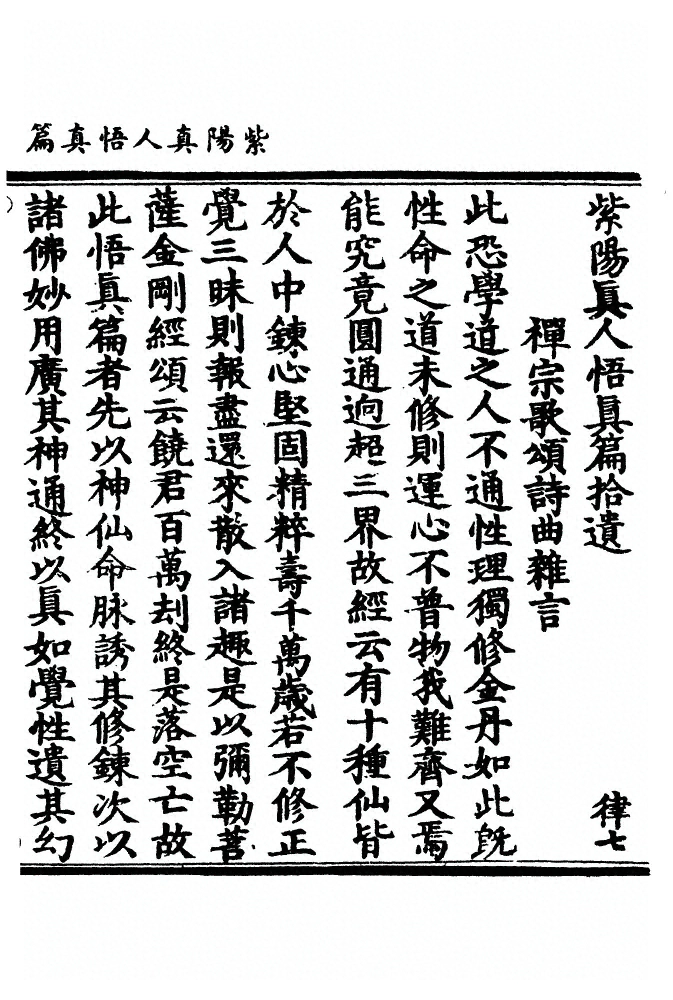 紫陽真人悟真篇
紫陽眞人悟眞篇拾遺　律七
禪宗歌頌詩曲雜言
此恐學道之人不通性理獨修金丹如此旣
性命之道未修則運心不普物我難齊又焉
能究竟圓通逈超三界故經云有十種仙皆
於人中鍊心堅固精粹壽千萬歲若不修正
覺三昧則報盡還來散入諸趣是以彌勒菩
薩金剛經頌云饒君百萬刦終是落空亡故
此悟眞篇者先以神仙命脉誘其修鍊次以
諸佛妙用廣其神通終以眞如覺性遺其幻